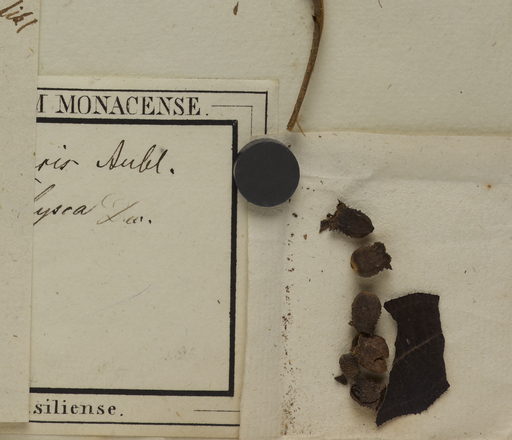 M MONACENSE.
ris Aubl.
ysca Lw.
siliense.